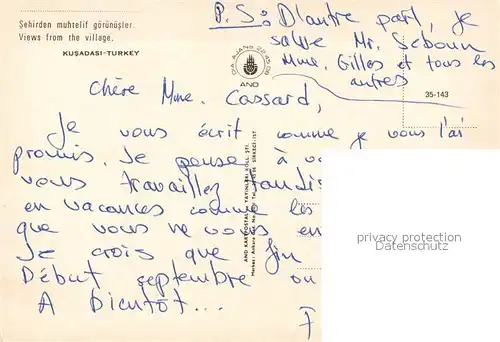 Şehirden muhtelif görünüşler.
Views from the village.
KUŞADASI-TURKEY
AND
35-143
P.S: D'autre part, je
salue Mr. Seboun
Mme. Gilles et tous les
autres
Chère Mme. Cassard,
Je vous écrit comme je vous l'ai
promis. Je pense à
vous travaillez tandis
en vacances comme les
que vous ne vous en
Je crois que fin
Début septembre ou
A Dientôt...
AND KARTPOSTAL YAYINLARI KOLL. ŞTİ.
Merkez: Ankara Cad. No. SİRKECİ-İST
privacy protection
AK-Ansichtskarten.de